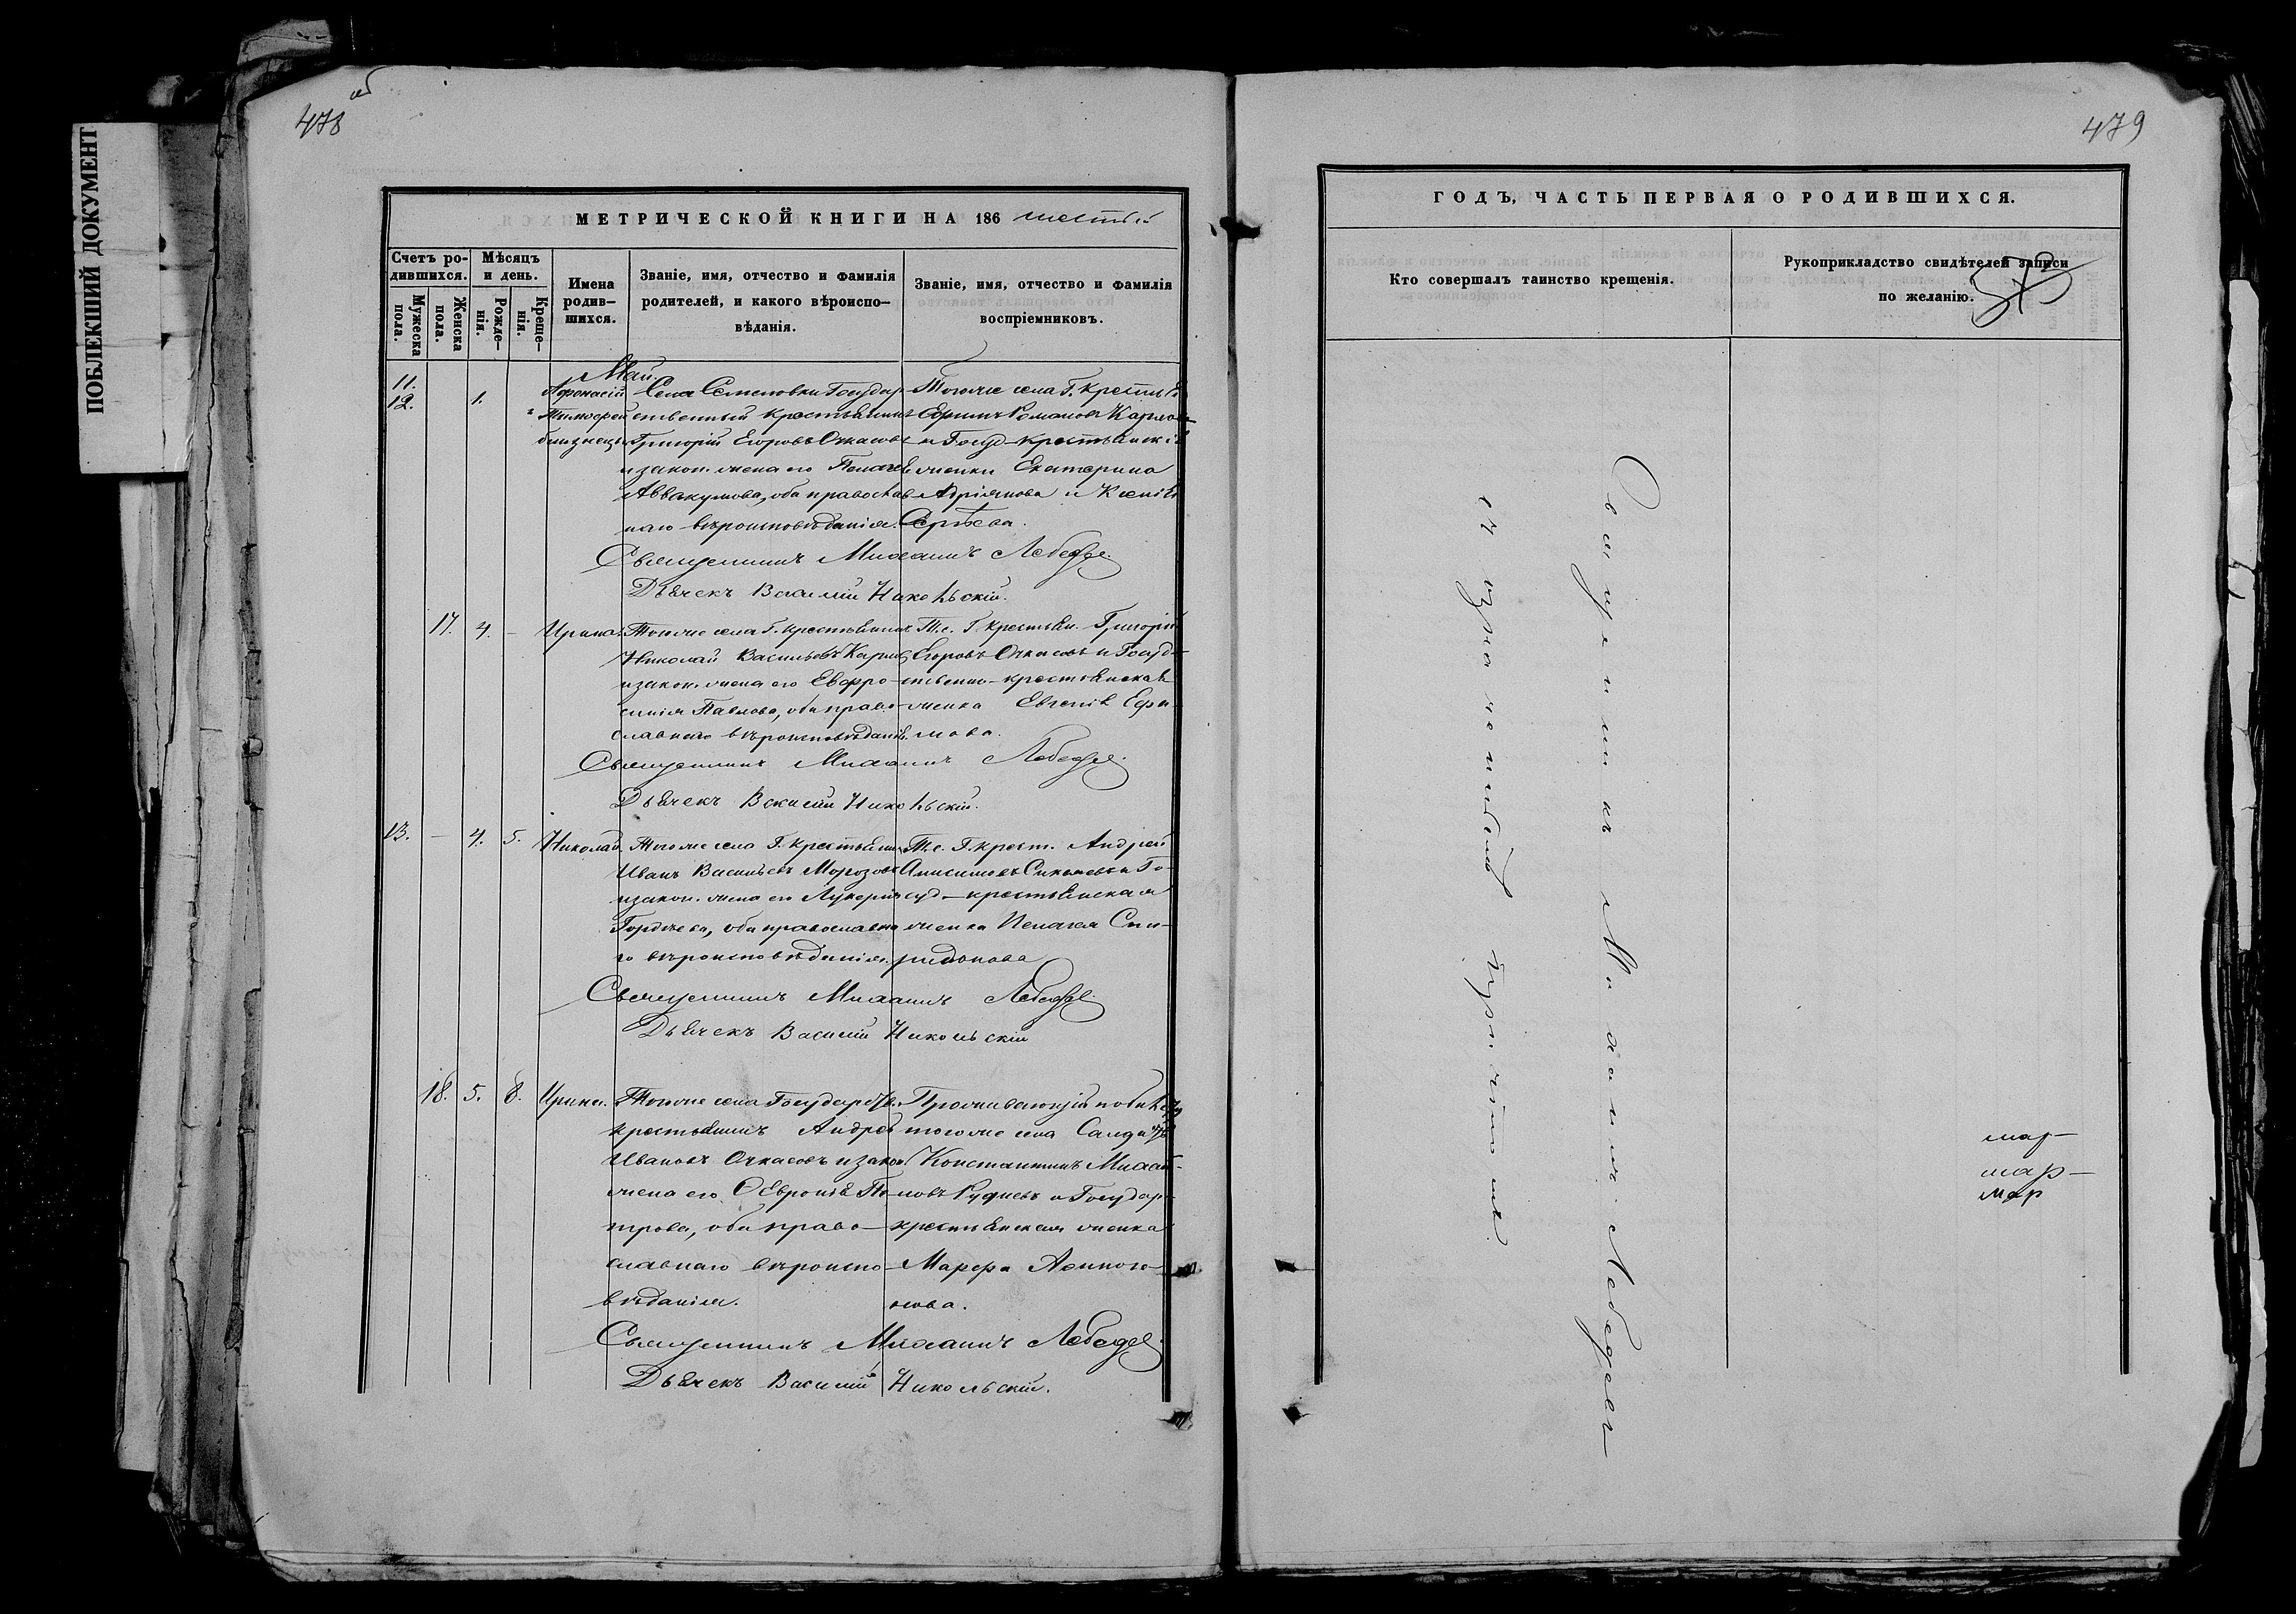 ПОБЛЕКШИЙ ДОКУМЕНТ
478 об
МЕТРИЧЕСКОЙ КНИГИ НА 186 шестый
Счетъ ро-
дившихся.
Мужеска
пола.
Женска
пола.
Мѣсяцъ
и день.
Рожде-
нія.
Креще-
нія.
Имена
родив-
шихся.
Званіе, имя, отчество и фамилія
родителей, и какого вѣроиспо-
вѣданія.
Званіе, имя, отчество и фамилія
воспріемниковъ.
Май.
11.
12.
1.
Афонасій
Тимофей
близнецы
Села Семеновки Государ-
ственный крестьянинъ
Григорій Егоровъ Очкасовъ
и закон. жена его Пелагея
Аввакумова, оба православ
наго вѣроисповѣданія.
Тогоже села Г. крестьян
Ефимъ Романовъ Карло
и Госуд-крестьянскія
женки Екатерина
Адріянова и Ксенія
Сергѣева.
Священникъ Михаилъ Лебедев
Дьячекъ Василій Никольскій.
17. 4. -
Ирина.
Тогоже села Г. крестьянинъ
Николай Васильевъ
и закон. жена его Евфро-
синія Павлова, оба право-
славнаго вѣроисповѣданія.
Т.с. Г. крестьян. Григорій
Егоровъ Очкасовъ и Госуд-
ственно-крестьянская
женка Евгенія Ефи
мова.
Священникъ Михаилъ Лебедев
Дьячекъ Василій Никольскій.
13. - 4. 5.
Николай.
Тогоже села Г. крестьянин
Иванъ Васильевъ Морозовъ
и закон. жена его Лукерія
Гордѣева, оба православна
го вѣроисповѣданія.
Т.с. Г. крест. Андрей
Анисимовъ и Го-
суд-крестьянская
женка Пелагея Спи-
ридонова
Священникъ Михаилъ Лебедев
Дьячекъ Василій Никольскій
18. 5. 8.
Ирина.
Тогоже села Государств.
крестьянинъ Андрей
Ивановъ Очкасовъ и закон
жена его Февронія Пе-
трова, оба право-
славнаго вѣроиспо-
вѣданія.
Проживающій по билету
тогоже села Солдатъ
Константинъ Михай-
ловъ Рудневъ и Государ-
крестьянская женка
Марфа
нова.
Священникъ Михаилъ Лебедев
Дьячекъ Василій Никольскій.
479
ГОДЪ, ЧАСТЬ ПЕРВАЯ О РОДИВШИХСЯ.
Кто совершалъ таинство крещенія.
Рукоприкладство свидѣтелей записи
по желанію.
Священникъ Михаилъ Лебедевъ
мар-
мар-
мар